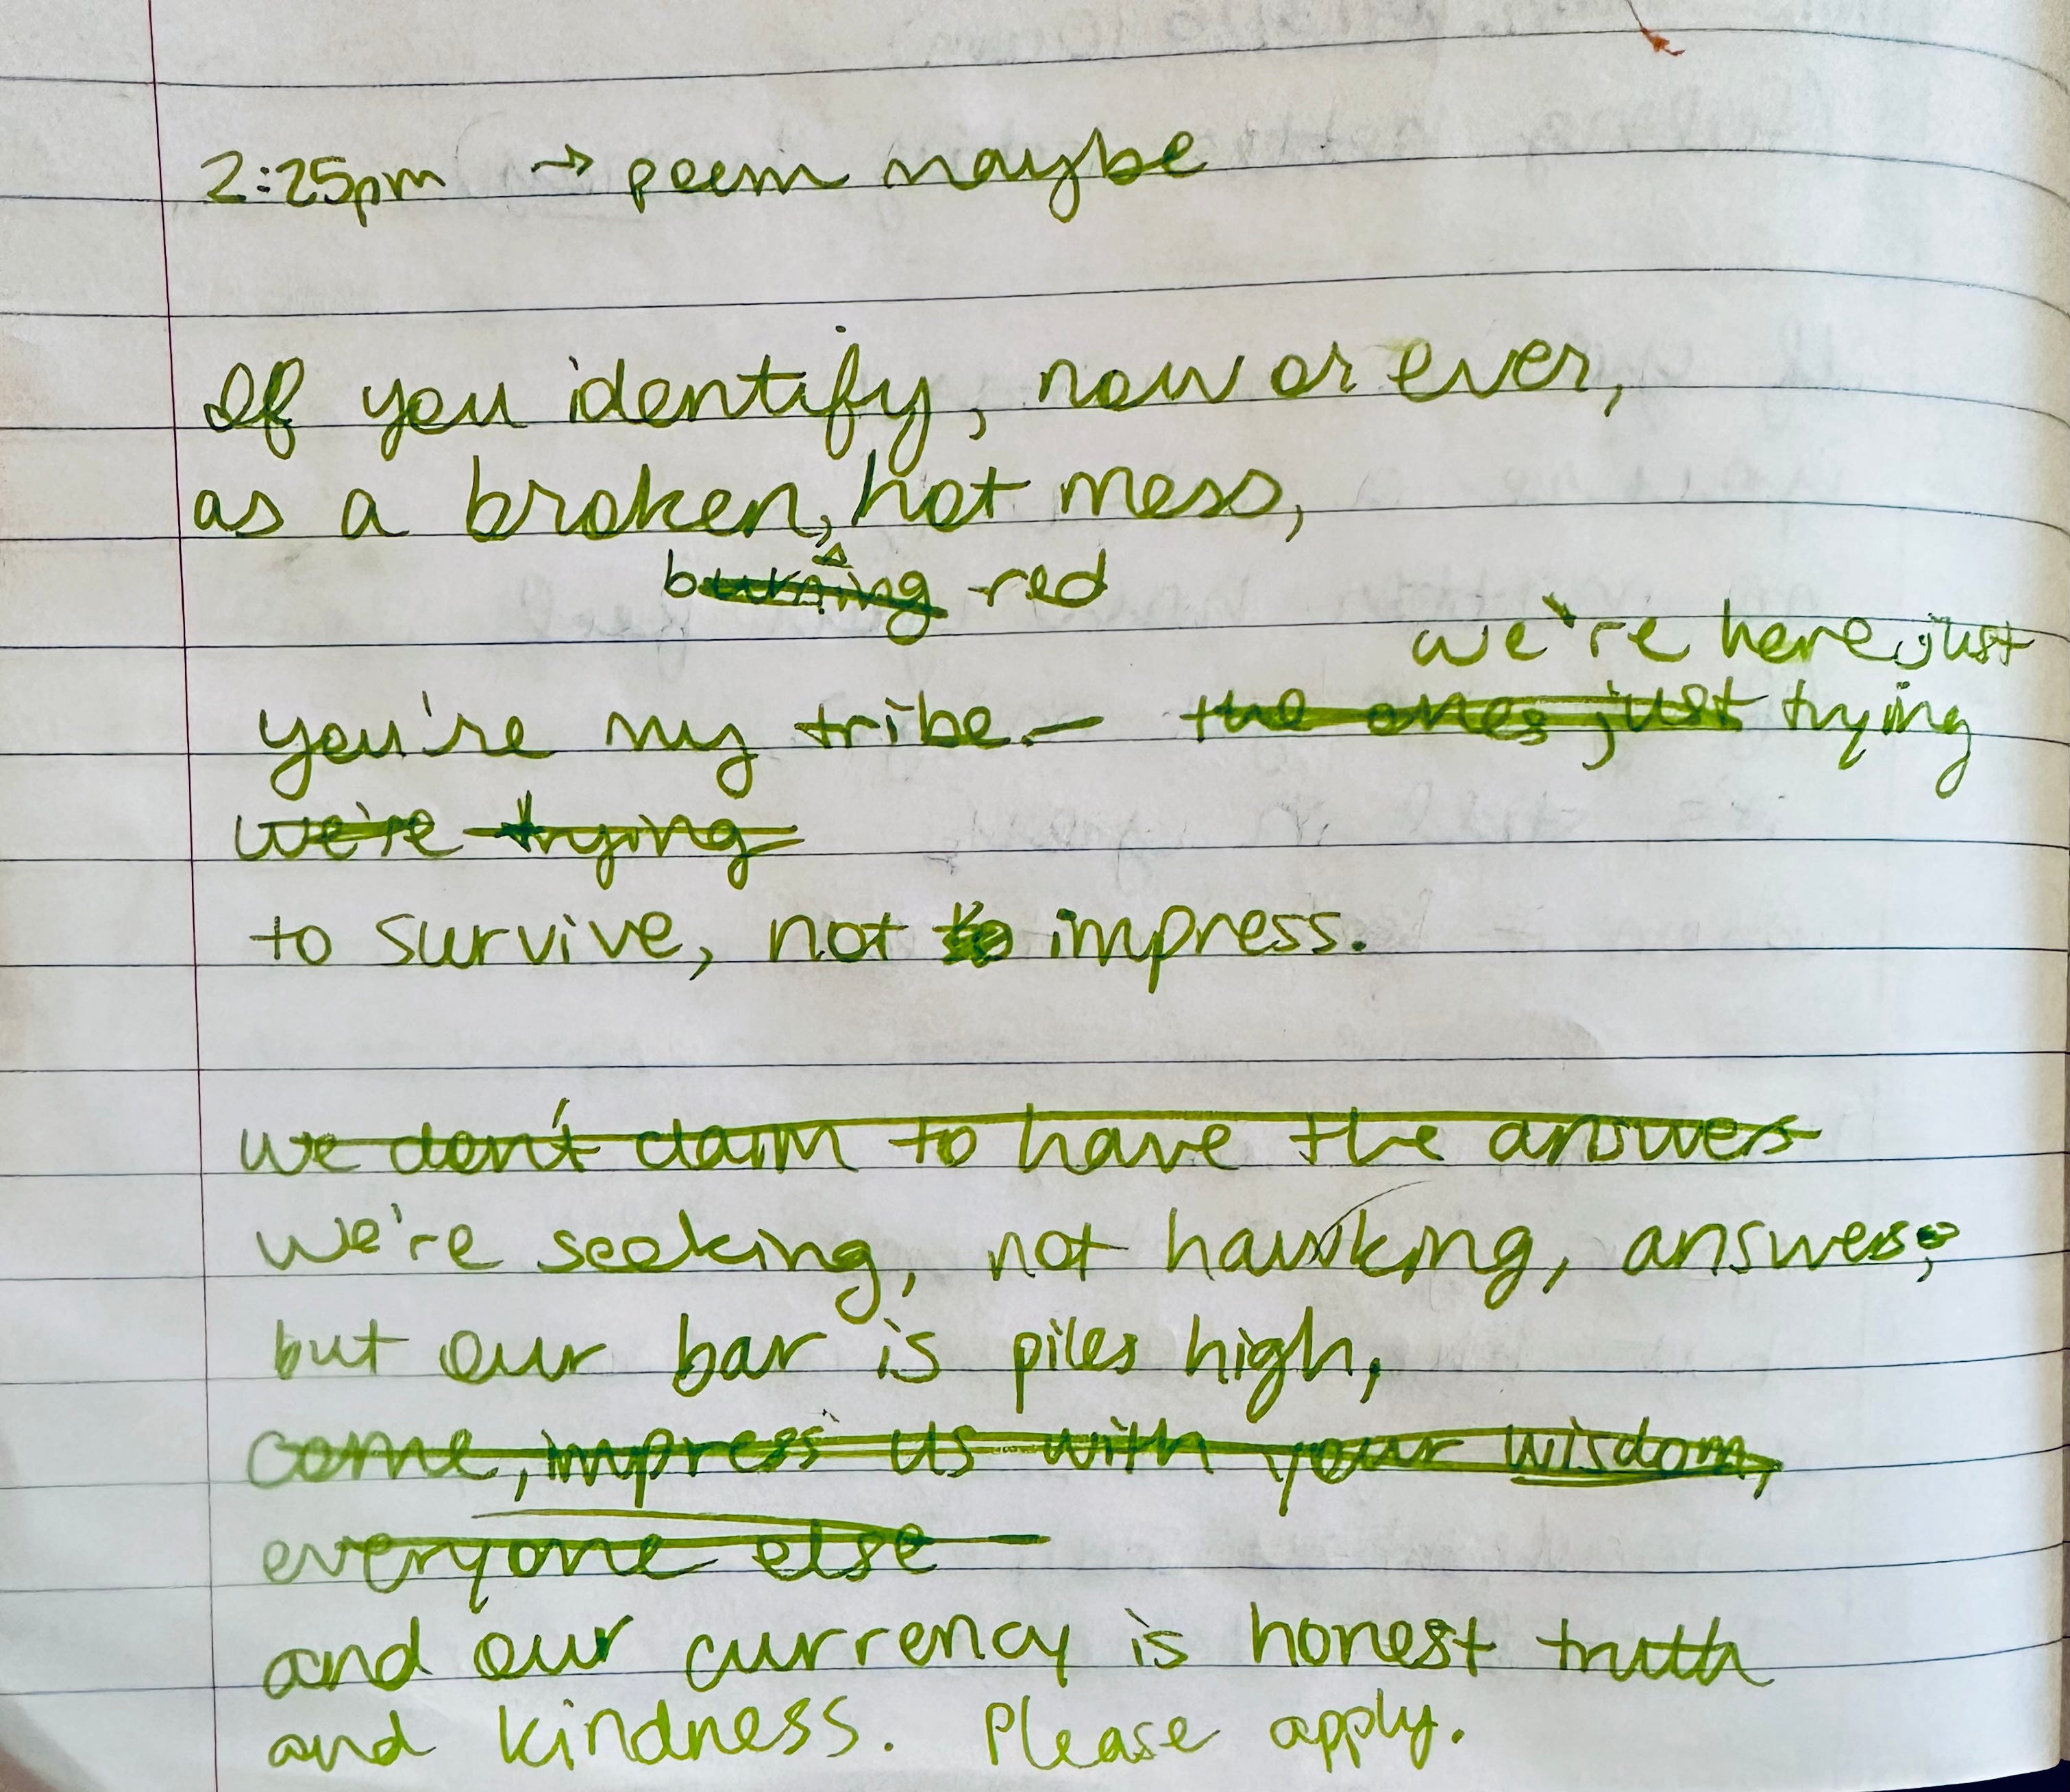 2:25pm → poem maybe
If you identify, now or ever,
as a broken, hot mess,
burning red
we're here just
you're my tribe. — the ones just trying
we're trying
to survive, not to impress.
we don't claim to have the answers
we're seeking, not hawking, answers,
but our bar is piles high,
come, impress us with your wisdom,
everyone else
and our currency is honest truth
and kindness. Please apply.